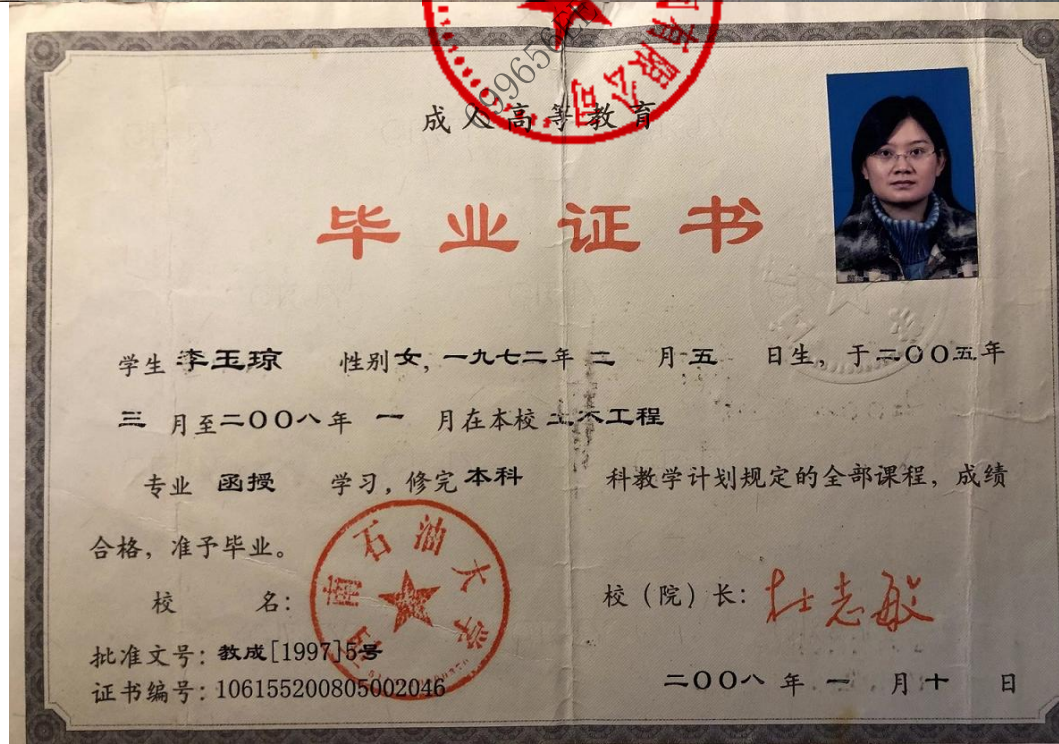 有限公司
成人高等教育
毕业证书
学生 李玉琼 性别 女, 一九七二年 二 月 五 日生, 于二〇〇五年
三 月至二〇〇八年 一 月在本校 土木工程
专业 函授 学习, 修完 本科 科教学计划规定的全部课程, 成绩
合格, 准予毕业。
校 名: 西南石油大学
校(院)长: 杜志敏
批准文号: 教成[1997]5号
证书编号: 106155200805002046
二〇〇八 年 一 月 十 日